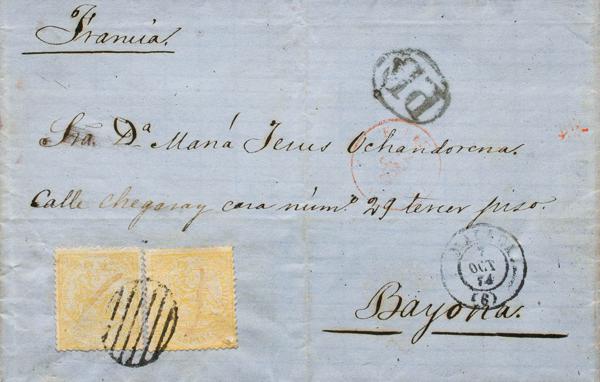 Francia.
P.D.
Sra. Dª Maná Jesus Ochandorena.
Calle Chegaray casa núm.º 29 tercer piso.
OCT
74
(6)
Bayona.